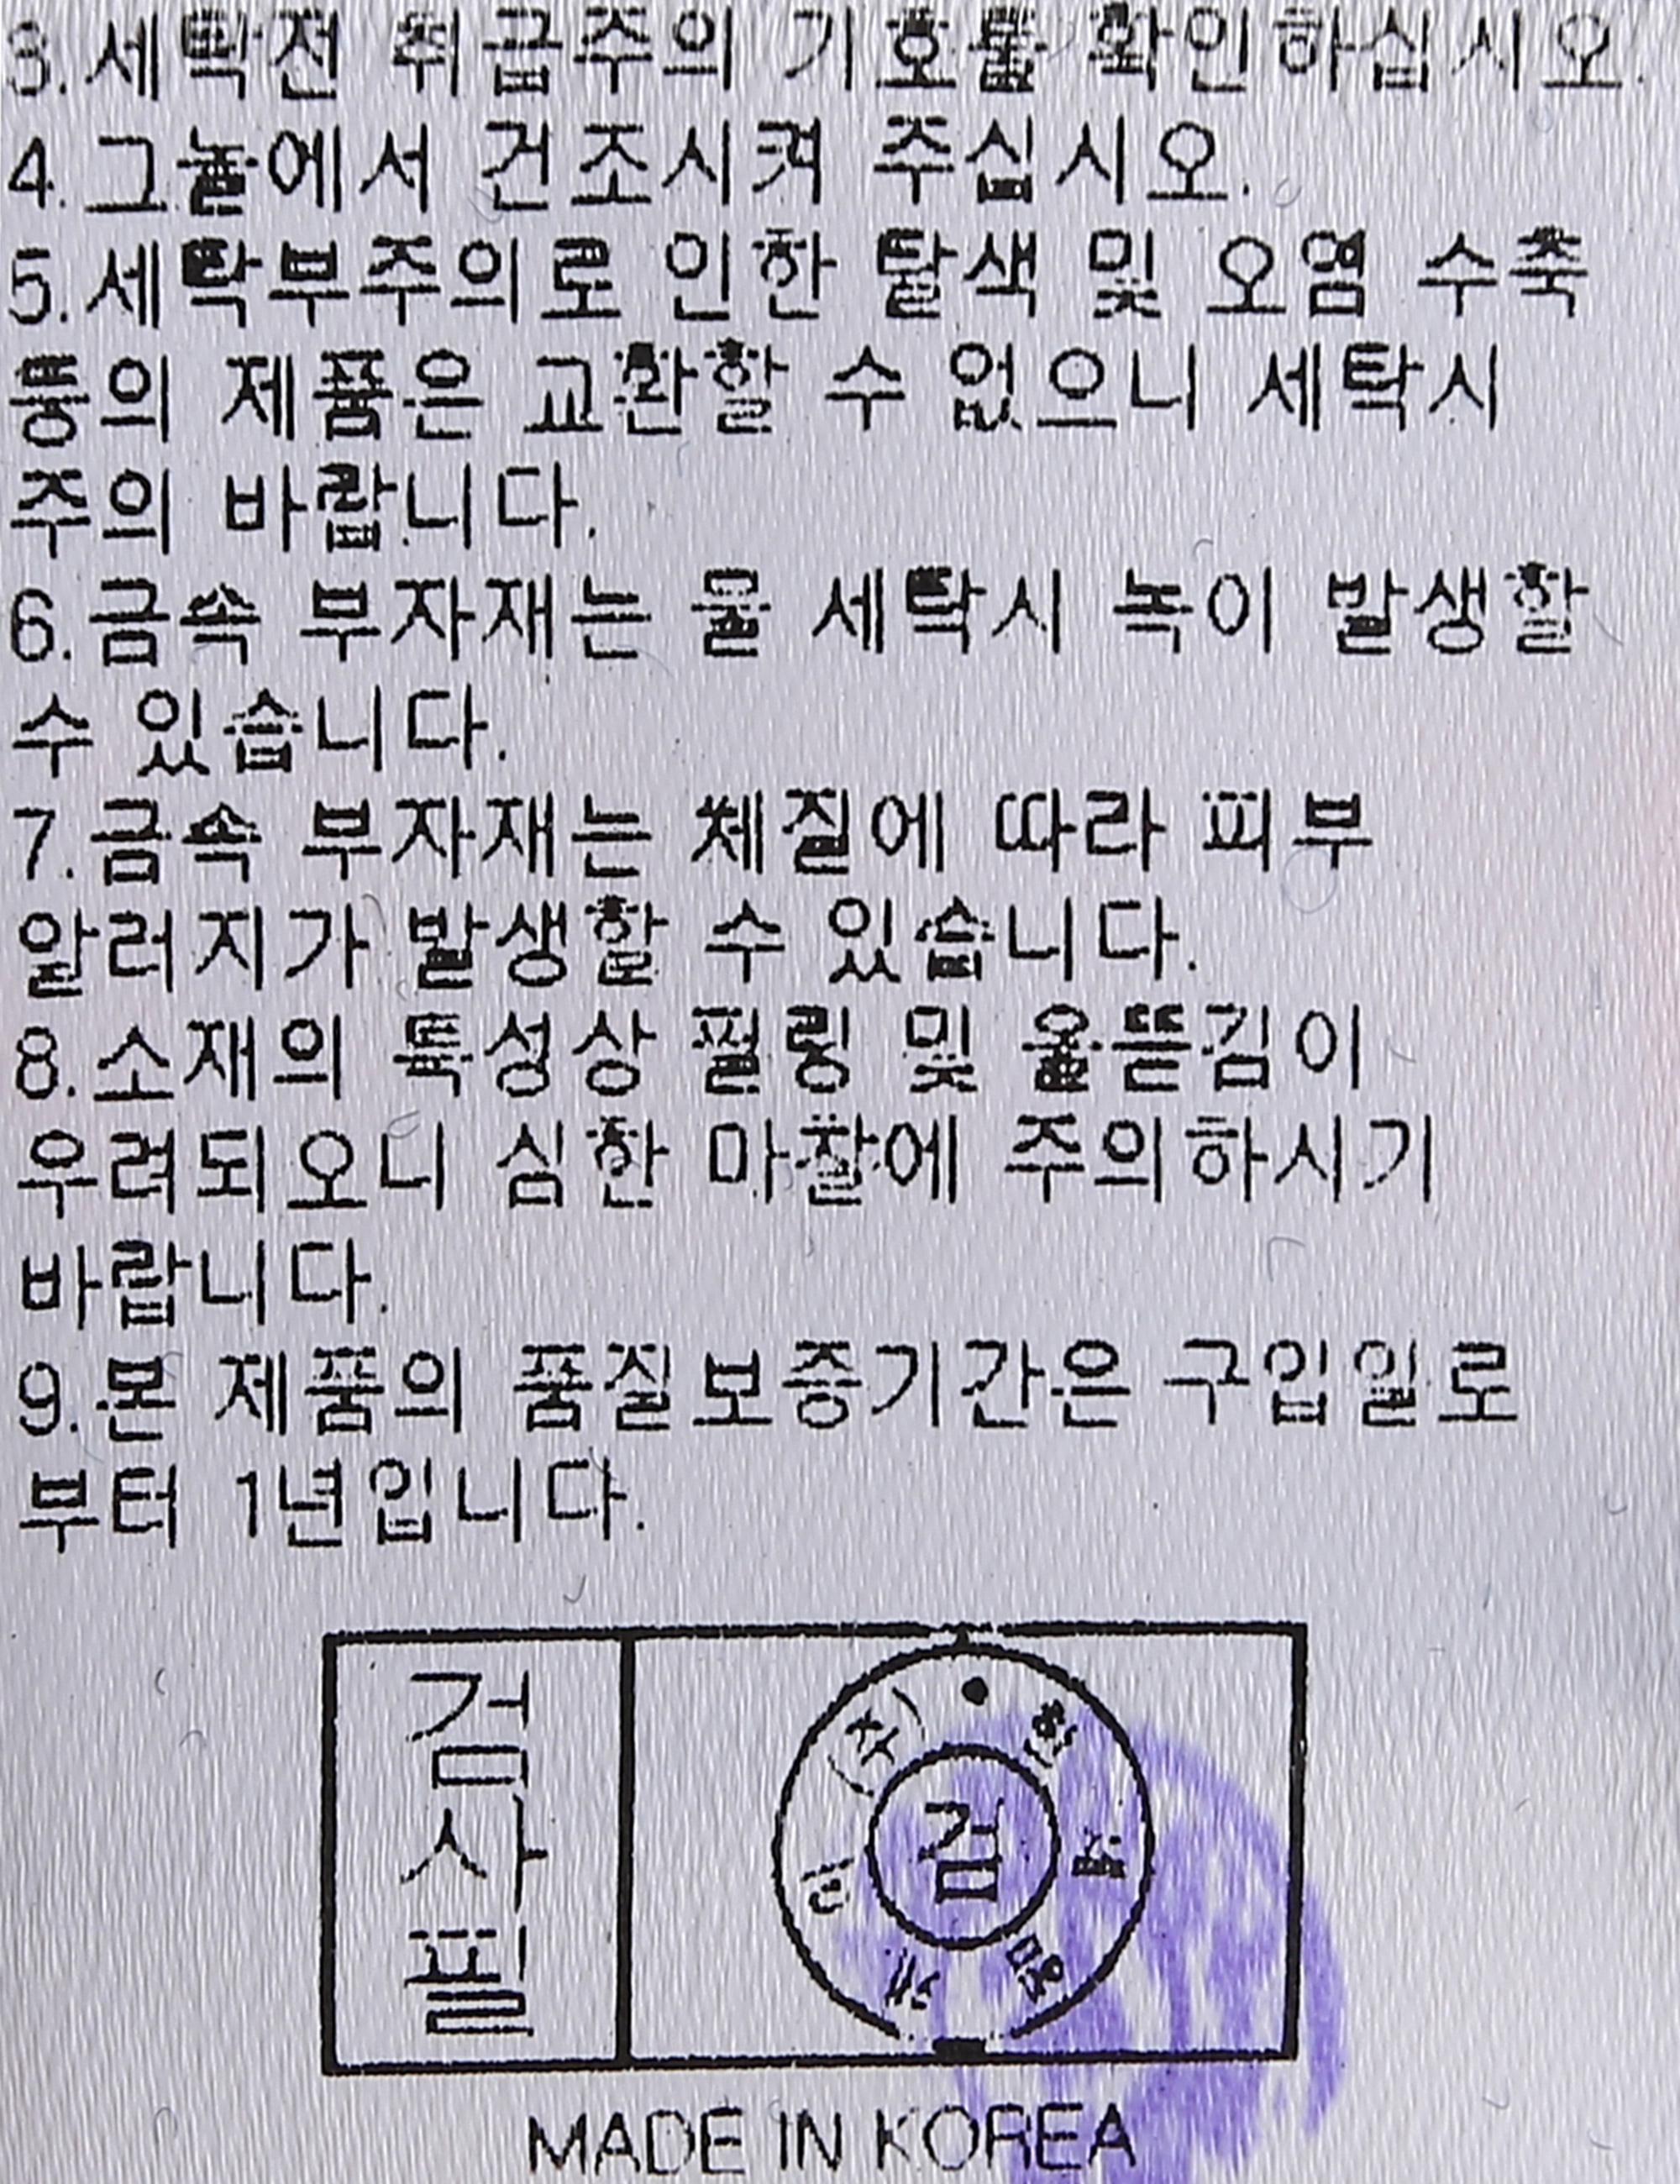 3.세탁전 취급주의 기호를 확인하십시오.
4.그늘에서 건조시켜 주십시오.
5.세탁부주의로 인한 탈색 및 오염 수축
등의 제품은 교환할 수 없으니 세탁시
주의 바랍니다.
6.금속 부자재는 물 세탁시 녹이 발생할
수 있습니다.
7.금속 부자재는 체질에 따라 피부
알러지가 발생할 수 있습니다.
8.소재의 특성상 필링 및 올뜯김이
우려되오니 심한 마찰에 주의하시기
바랍니다.
9.본 제품의 품질보증기간은 구입일로
부터 1년입니다.
검사필
검
MADE IN KOREA